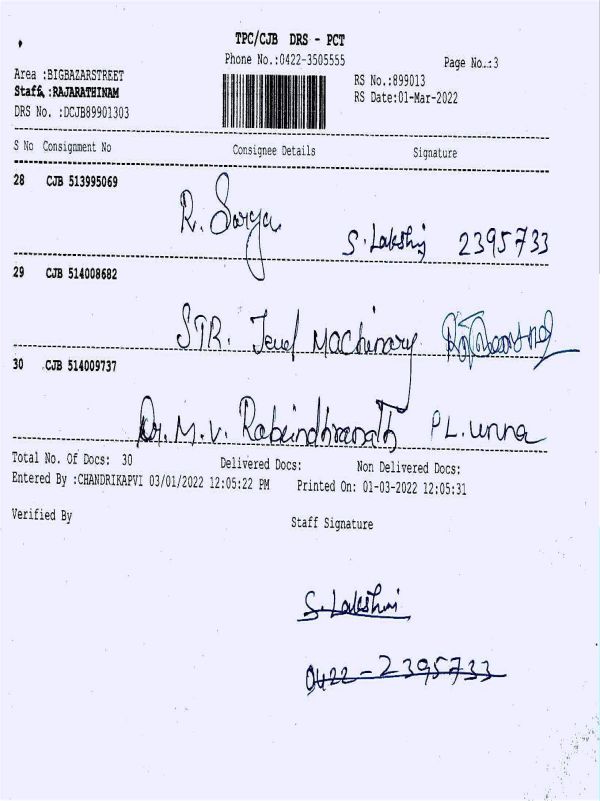 TPC/CJB DRS - PCT
Phone No.:0422-3505555
Page No..:3
Area :BIGBAZARSTREET
RS No.:899013
Staff :RAJARATHINAM
RS Date:01-Mar-2022
DRS No. :DCJB89901303
S No Consignment No Consignee Details Signature
28 CJB 513995069
R. Sorya
S. Lakshmi 2395733
29 CJB 514008682
STR. Jewel Machinary
30 CJB 514009737
Dr. M.V. Rabeindhranath
Total No. Of Docs: 30 Delivered Docs: Non Delivered Docs:
Entered By :CHANDRIKAPVI 03/01/2022 12:05:22 PM Printed On: 01-03-2022 12:05:31
Verified By Staff Signature
S. Lakshmi
0422-2395733